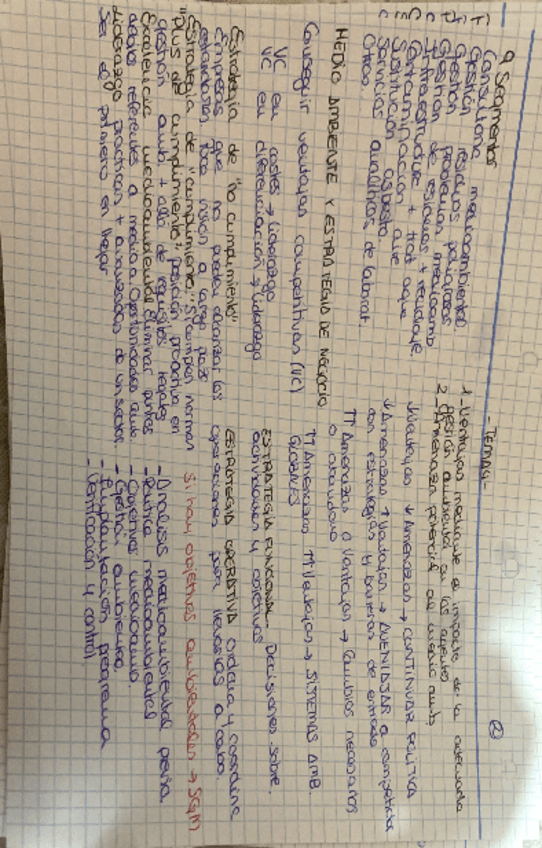 9 Segmentos
Consultoría medioambiental
F Gestión residuos peligrosos
Gestión problemas medioamb
Gestión de residuos + reciclaje
Infraestructura + trat agua
Contaminación aire
Sustitución asbesto
Servicios analíticos de laborat.
Otros.
MEDIO AMBIENTE Y ESTRATEGIA DE NEGOCIO
Conseguir ventajas competitivas (VC)
VC en costes → Liderazgo
VC en diferenciación → Liderazgo
Estrategia de "no cumplimiento"
Empresas que no pueden alcanzar los
estándares. Poca visión a largo plazo
Estrategia de "cumplimiento" Si cumplen normas
"Plus de cumplimiento" posición proactiva en
gestión amb + allá de requisitos legales
Excelencia medioambiental eliminar puntos
referentes a medio a Oportunidades amb.
Liderazgo practican + avanzadas de un sector.
Ser el primero en llegar
②
- TEMA 4 -
1 - Ventajas mediante el impacto de la adecuada
gestión ambiental en los agentes
2 - Amenaza potencial del medio amb
↓ Ventajas ↓ Amenazas → CONTINUAR POLÍTICA
↓ Amenazas ↑ Ventajas → AVENTAJAR a competencia
con estrategias y barreras de entrada
↑↑ Amenazas o Ventajas → Cambios necesarios
o abandono
↑↑ Amenazas ↑↑ Ventajas → SISTEMAS AMB.
GLOBALES
ESTRATEGIA FUNCIONAL - Decisiones sobre
actividades y objetivos
ESTRATEGIA OPERATIVA Ordena y coordina
operaciones para llevarlas a cabo.
Si hay objetivos ambientales → SGM
- Análisis medioambiental previa
- Política medioambiental
- Objetivos medioamb.
- Gestión ambiental
- Implantación programa
- Verificación y control